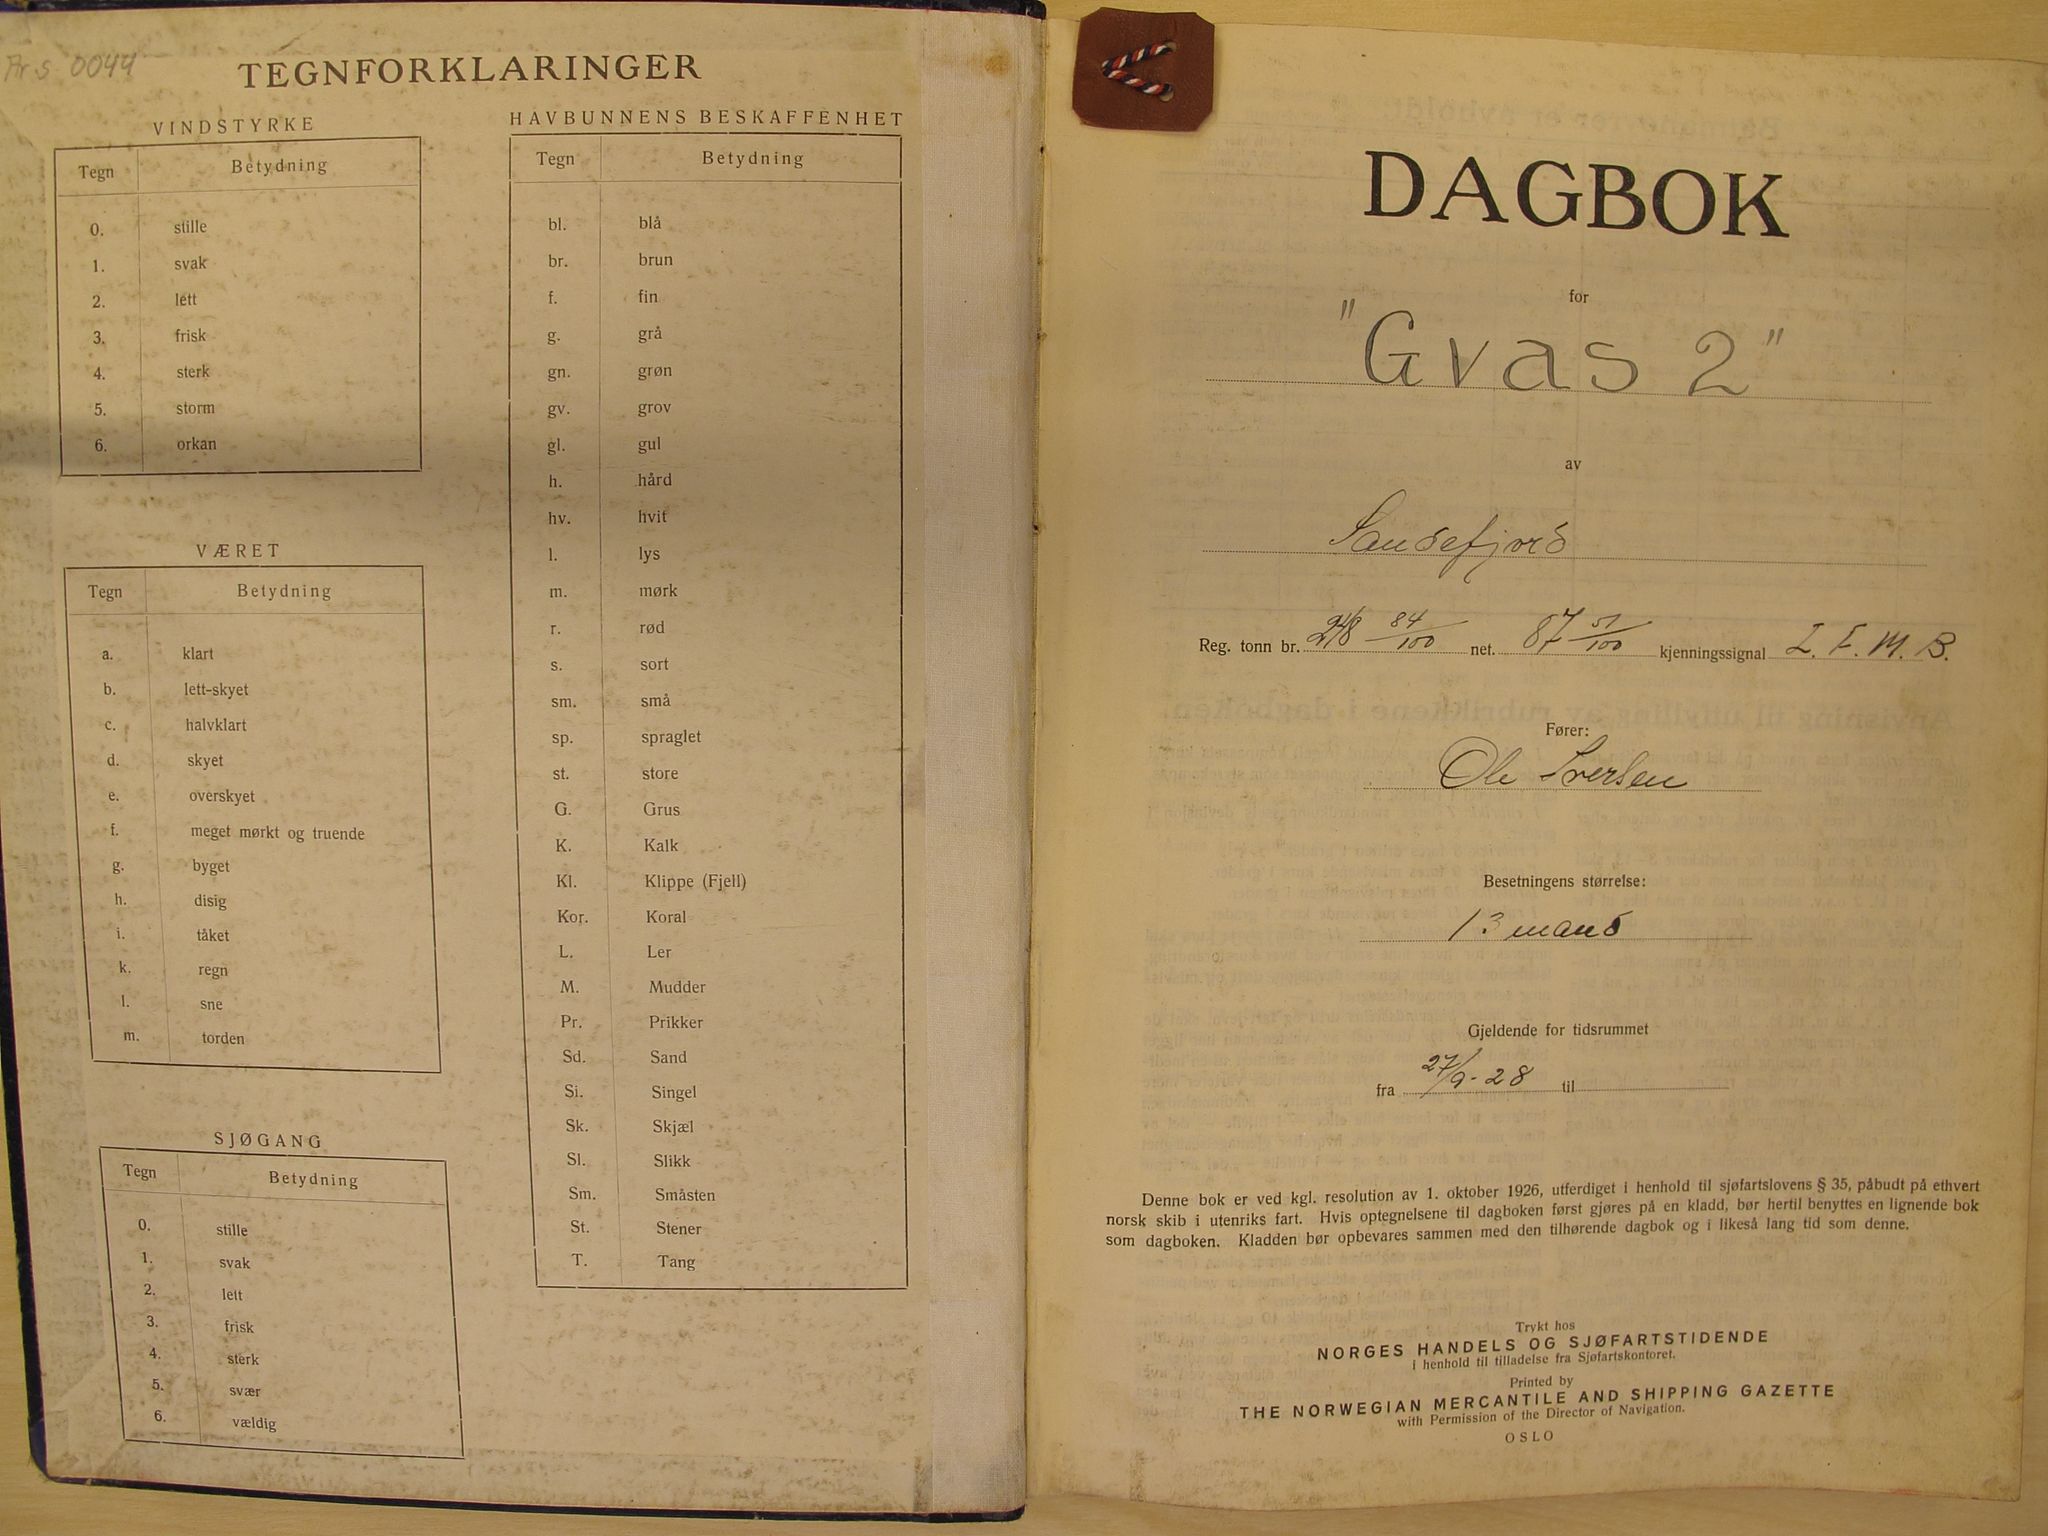 Ars 0044
TEGNFORKLARINGER
VINDSTYRKE
Tegn Betydning
0. stille
1. svak
2. lett
3. frisk
4. sterk
5. storm
6. orkan
VÆRET
Tegn Betydning
a. klart
b. lett-skyet
c. halvklart
d. skyet
e. overskyet
f. meget mørkt og truende
g. byget
h. disig
i. tåket
k. regn
l. sne
m. torden
SJØGANG
Tegn Betydning
0. stille
1. svak
2. lett
3. frisk
4. sterk
5. svær
6. vældig
HAVBUNNENS BESKAFFENHET
Tegn Betydning
bl. blå
br. brun
f. fin
g. grå
gn. grøn
gv. grov
gl. gul
h. hård
hv. hvit
l. lys
m. mørk
r. rød
s. sort
sm. små
sp. spraglet
st. store
G. Grus
K. Kalk
Kl. Klippe (Fjell)
Kor. Koral
L. Ler
M. Mudder
Pr. Prikker
Sd. Sand
Si. Singel
Sk. Skjæl
Sl. Slikk
Sm. Småsten
St. Stener
T. Tang
DAGBOK
for
"Gvas 2"
av
Sandefjord
Reg. tonn br. 248 84/100 net. 87 51/100 kjenningssignal L. F. M. B.
Fører:
Ole Iversen
Besetningens størrelse:
13 mand
Gjeldende for tidsrummet
fra 27/9-28 til
Denne bok er ved kgl. resolution av 1. oktober 1926, utferdiget i henhold til sjøfartslovens § 35, påbudt på ethvert
norsk skib i utenriks fart. Hvis optegnelsene til dagboken først gjøres på en kladd, bør hertil benyttes en lignende bok
som dagboken. Kladden bør opbevares sammen med den tilhørende dagbok og i likeså lang tid som denne.
Trykt hos
NORGES HANDELS OG SJØFARTSTIDENDE
i henhold til tilladelse fra Sjøfartskontoret.
Printed by
THE NORWEGIAN MERCANTILE AND SHIPPING GAZETTE
with Permission of the Director of Navigation.
OSLO